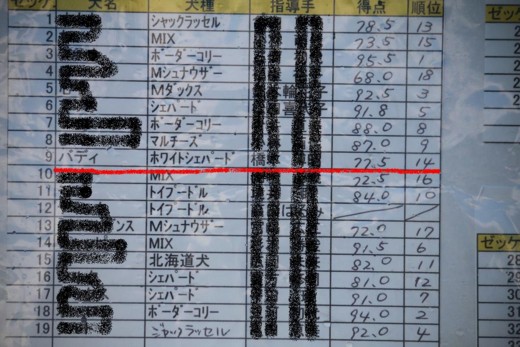 ゼッケ 犬名 犬種 指導手 得点 順位
1 ジャックラッセル 78.5 13
2 MIX 73.5 15
3 ボーダーコリー 95.5 1
4 Mシュナウザー 68.0 18
5 Mダックス 92.5 3
6 シェパード 91.8 5
7 ボーダーコリー 88.0 8
8 マルチーズ 87.0 9
9 バディ ホワイトシェパード 77.5 14
10 MIX 72.5 16
11 トイプードル 84.0 10
12 トイプードル
13 ンス Mシュナウザー 72.0 17
14 MIX 91.5 6
15 北海道犬 82.0 11
16 シェパード 81.0 12
17 シェパード 91.0 7
18 ボーダーコリー 94.0 2
19 ジャックラッセル 92.0 4
ゼッケ
28
29
30
31
32